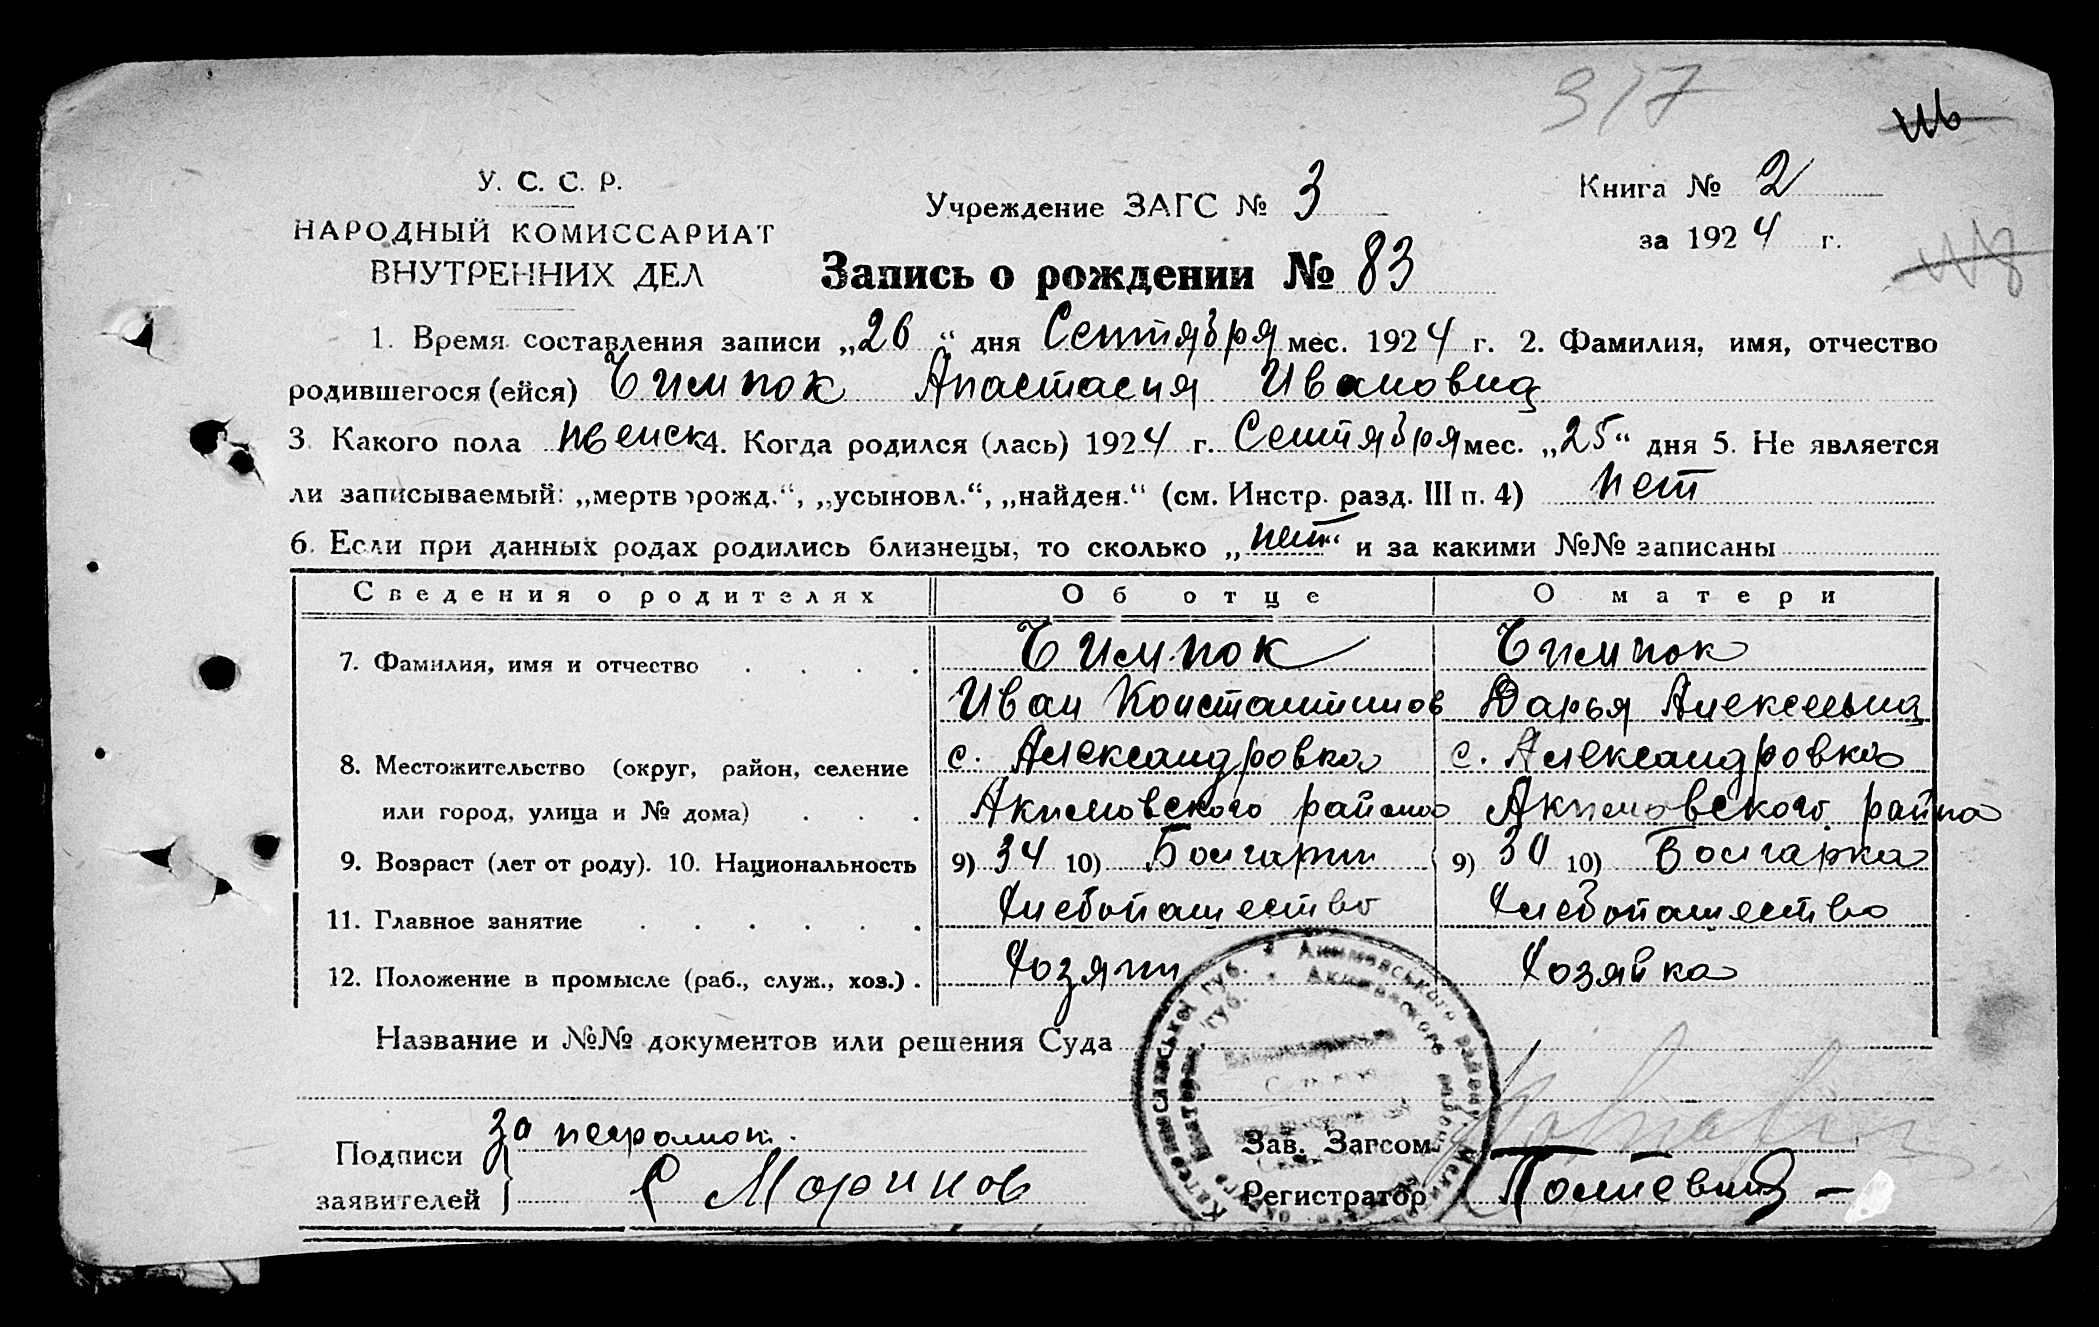 317
У. С. С. Р.
НАРОДНЫЙ КОМИССАРИАТ
ВНУТРЕННИХ ДЕЛ
Учреждение ЗАГС № 3
Книга № 2
за 1924 г.
Запись о рождении № 83
1. Время составления записи „26“ дня Сентября мес. 1924 г. 2. Фамилия, имя, отчество
родившегося (ейся) Чимпок Анастасия Ивановна
3. Какого пола женск 4. Когда родился (лась) 1924 г. Сентября мес. „25“ дня 5. Не является
ли записываемый: „мертворожд.“, „усыновл.“, „найден.“ (см. Инстр. разд. III п. 4) Нет
6. Если при данных родах родились близнецы, то сколько „нет“ и за какими №№ записаны
Сведения о родителях Об отце О матери
7. Фамилия, имя и отчество . . . . Чимпок Чимпок
Иван Константинов Дарья Алексеевна
8. Местожительство (округ, район, селение с. Александровка с. Александровка
или город, улица и № дома) . . . Акимовского района Акимовского района
9. Возраст (лет от роду). 10. Национальность 9) 34 10) Болгарин 9) 30 10) Болгарка
11. Главное занятие . . . . . . Хлебопашество Хлебопашество
12. Положение в промысле (раб., служ., хоз.) . Хозяин Хозяйка
Название и №№ документов или решения Суда
Подписи
заявителей
За неграмот.
С Маринов
Зав. Загсом
Регистратор